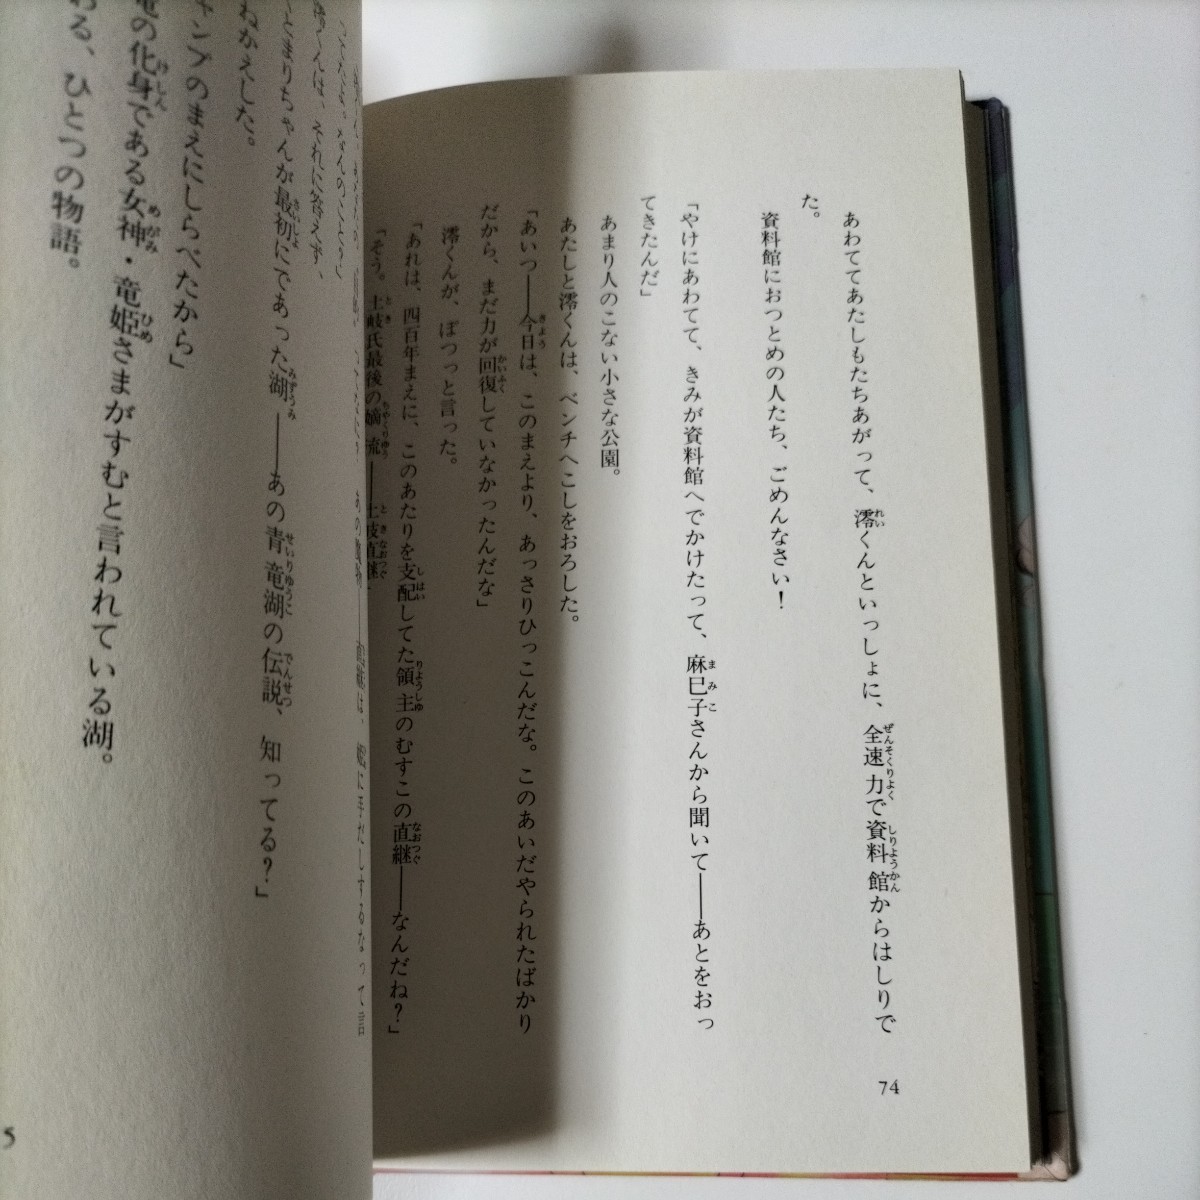 あわててあたしもたちあがって、澪くんといっしょに、全速力で資料館からはしりで
た。
資料館におつとめの人たち、ごめんなさい！
「やけにあわてて、きみが資料館へでかけたって、麻巳子さんから聞いて――あとをおっ
てきたんだ」
あまり人のこない小さな公園。
あたしと澪くんは、ベンチへこしをおろした。
「あいつ――今日は、このまえより、あっさりひっこんだな。このあいだやられたばかり
だから、まだ力が回復していなかったんだな」
澪くんが、ぽつっと言った。
「あれは、四百年まえに、このあたりを支配してた領主のむすこの直継――なんだね？」
「そう。土岐氏最後の嫡流――土岐直継」
74
に手だしするなって言
くんは、それに答えず、
とまりちゃんが最初にであった湖――あの青竜湖の伝説、知ってる？」
ねかえした。
ンプのまえにしらべたから」
の化身である女神・竜姫さまがすむと言われている湖。
わる、ひとつの物語。
5